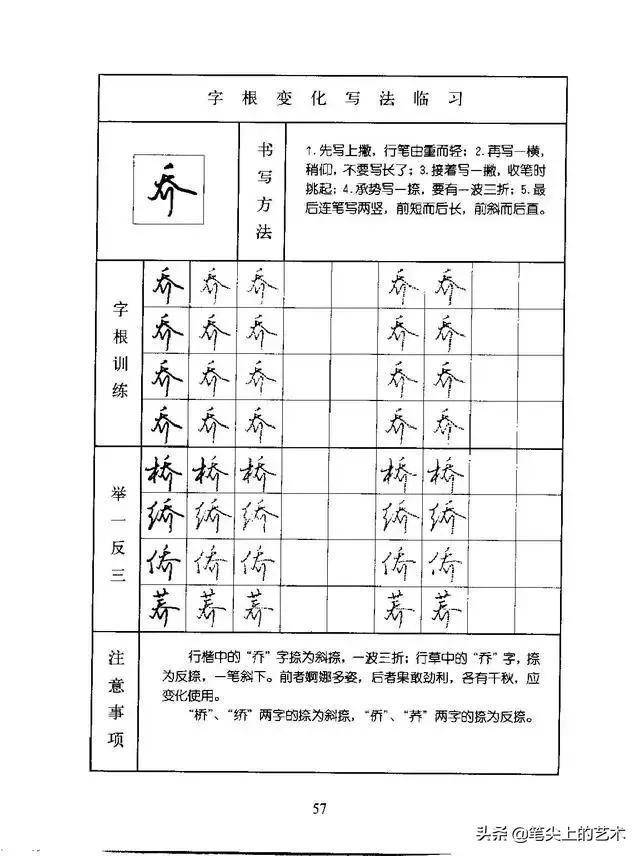 字根变化写法临习
书写方法
乔
1.先写上撇，行笔由重而轻；2.再写一横，
稍仰，不要写长了；3.接着写一撇，收笔时
挑起；4.承势写一捺，要有一波三折；5.最
后连笔写两竖，前短而后长，前斜而后直。
字根训练
乔 乔 乔 乔 乔
乔 乔 乔 乔 乔
乔 乔 乔 乔 乔
乔 乔 乔 乔 乔
举一反三
桥 桥 桥 桥 桥
侨 侨 侨 侨 侨
荞 荞 荞 荞 荞
注意事项
行楷中的“乔”字捺为斜捺，一波三折；行草中的“乔”字，捺
为反捺，一笔斜下。前者婀娜多姿，后者果敢劲利，各有千秋，应
变化使用。
“桥”、“”两字的捺为斜捺，“侨”、“荞”两字的捺为反捺。
57
头条 @笔尖上的艺术